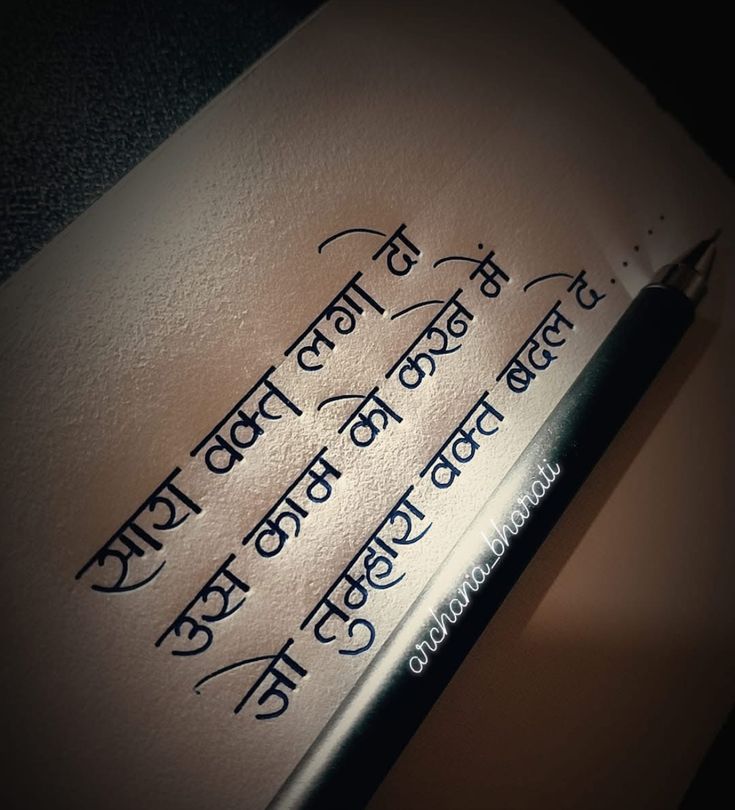 सारा वक्त लगा दो
उस काम को करने में
जो तुम्हारा वक्त बदल दे....
archana_bharati